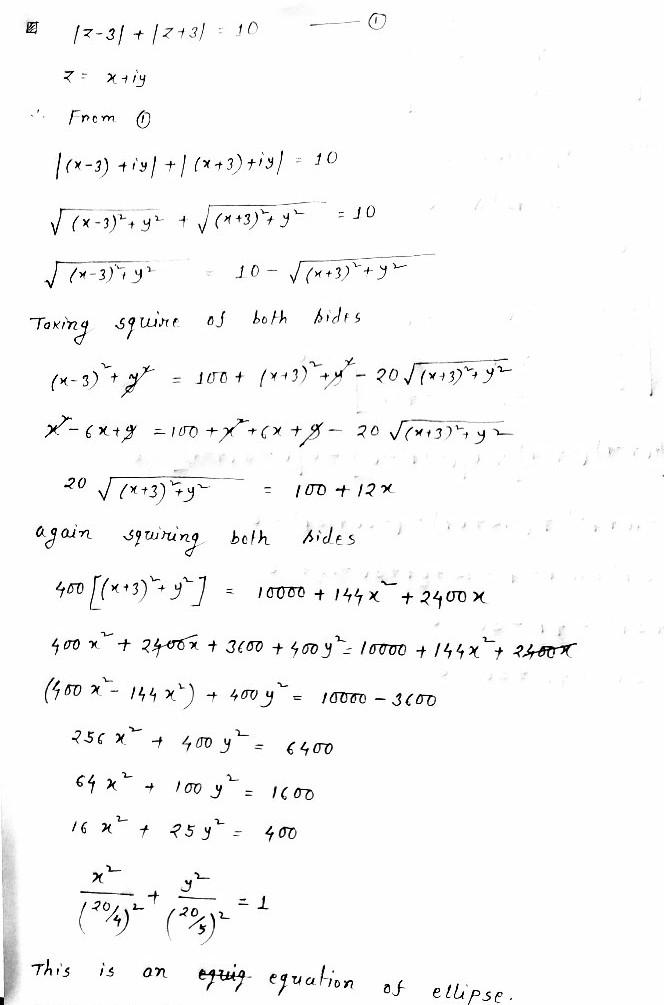 |z-3| + |z+3| = 10 —— ①
z = x+iy
∴ From ①
|(x-3) +iy| + |(x+3)+iy| = 10
√((x-3)²+ y²) + √((x+3)²+ y²) = 10
√((x-3)²+ y²) = 10 - √((x+3)²+ y²)
Taking squire of both sides
(x-3)²+ y² = 100 + (x+3)²+y² - 20√((x+3)²+ y²)
x²-6x+9 = 100 + x²+6x+9 - 20 √((x+3)²+ y²)
20 √((x+3)²+y²) = 100 + 12x
again squiring both sides
400 [(x+3)²+ y²] = 10000 + 144x² + 2400x
400 x² + 2400x + 3600 + 400y² = 10000 + 144x² + 2400x
(400 x² - 144 x²) + 400 y² = 10000 - 3600
256 x² + 400 y² = 6400
64 x² + 100 y² = 1600
16 x² + 25 y² = 400
x²/(20/4)² + y²/(20/5)² = 1
This is an equation of ellipse.